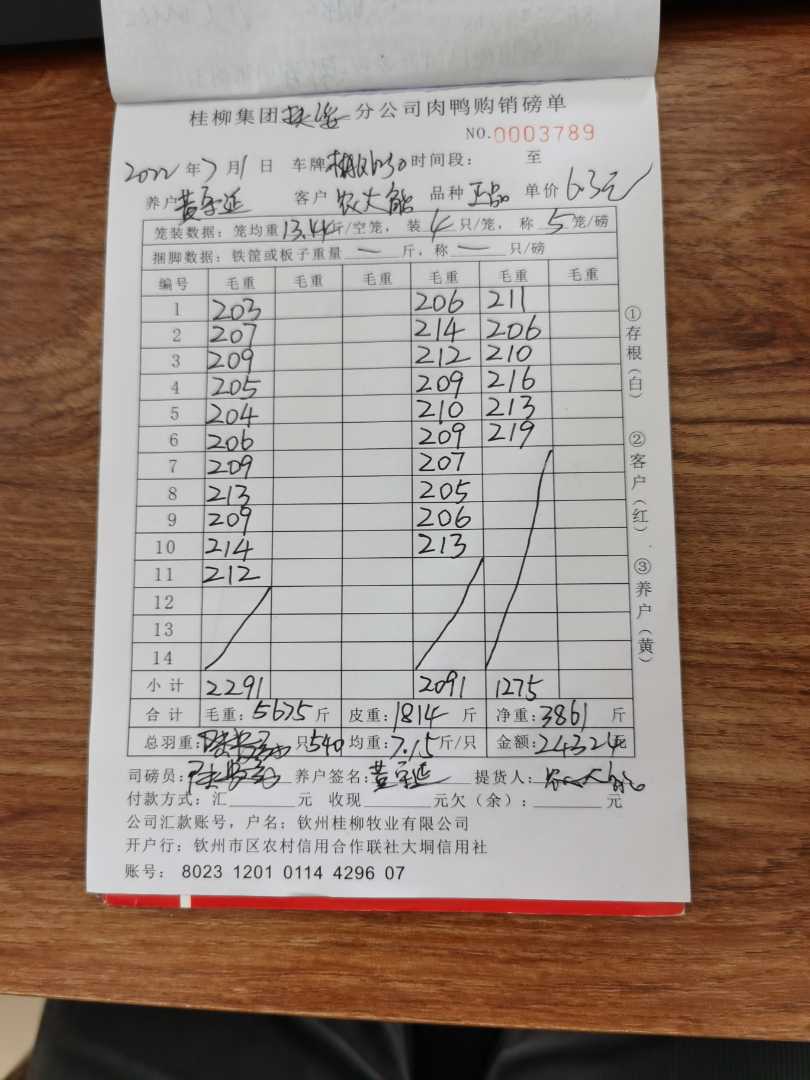 桂柳集团 分公司肉鸭购销磅单
NO.0003789
2022年7月1日 车牌 时间段： 至
养户 黄宗延 客户 农大能 品种 正品 单价 6.3元
笼装数据：笼均重13.44斤/空笼，装4只/笼，称5笼/磅
捆脚数据：铁筐或板子重量—斤，称—只/磅
编号 毛重 毛重 毛重 毛重 毛重 毛重
1 203 206 211
2 207 214 206
3 209 212 210
4 205 209 216
5 204 210 213
6 206 209 219
7 209 207
8 213 205
9 209 206
10 214 213
11 212
12
13
14
小计 2291 2091 1275
合计 毛重：5675斤 皮重：1814斤 净重：3861斤
总羽重： 只540 均重：7.15斤/只 金额：24324元
司磅员： 养户签名：黄宗延 提货人：农大能
付款方式：汇______元 收现______元欠（余）：______元
公司汇款账号，户名：钦州桂柳牧业有限公司
开户行：钦州市区农村信用合作联社大垌信用社
账号： 8023 1201 0114 4296 07
①存根（白）
②客户（红）
③养户（黄）